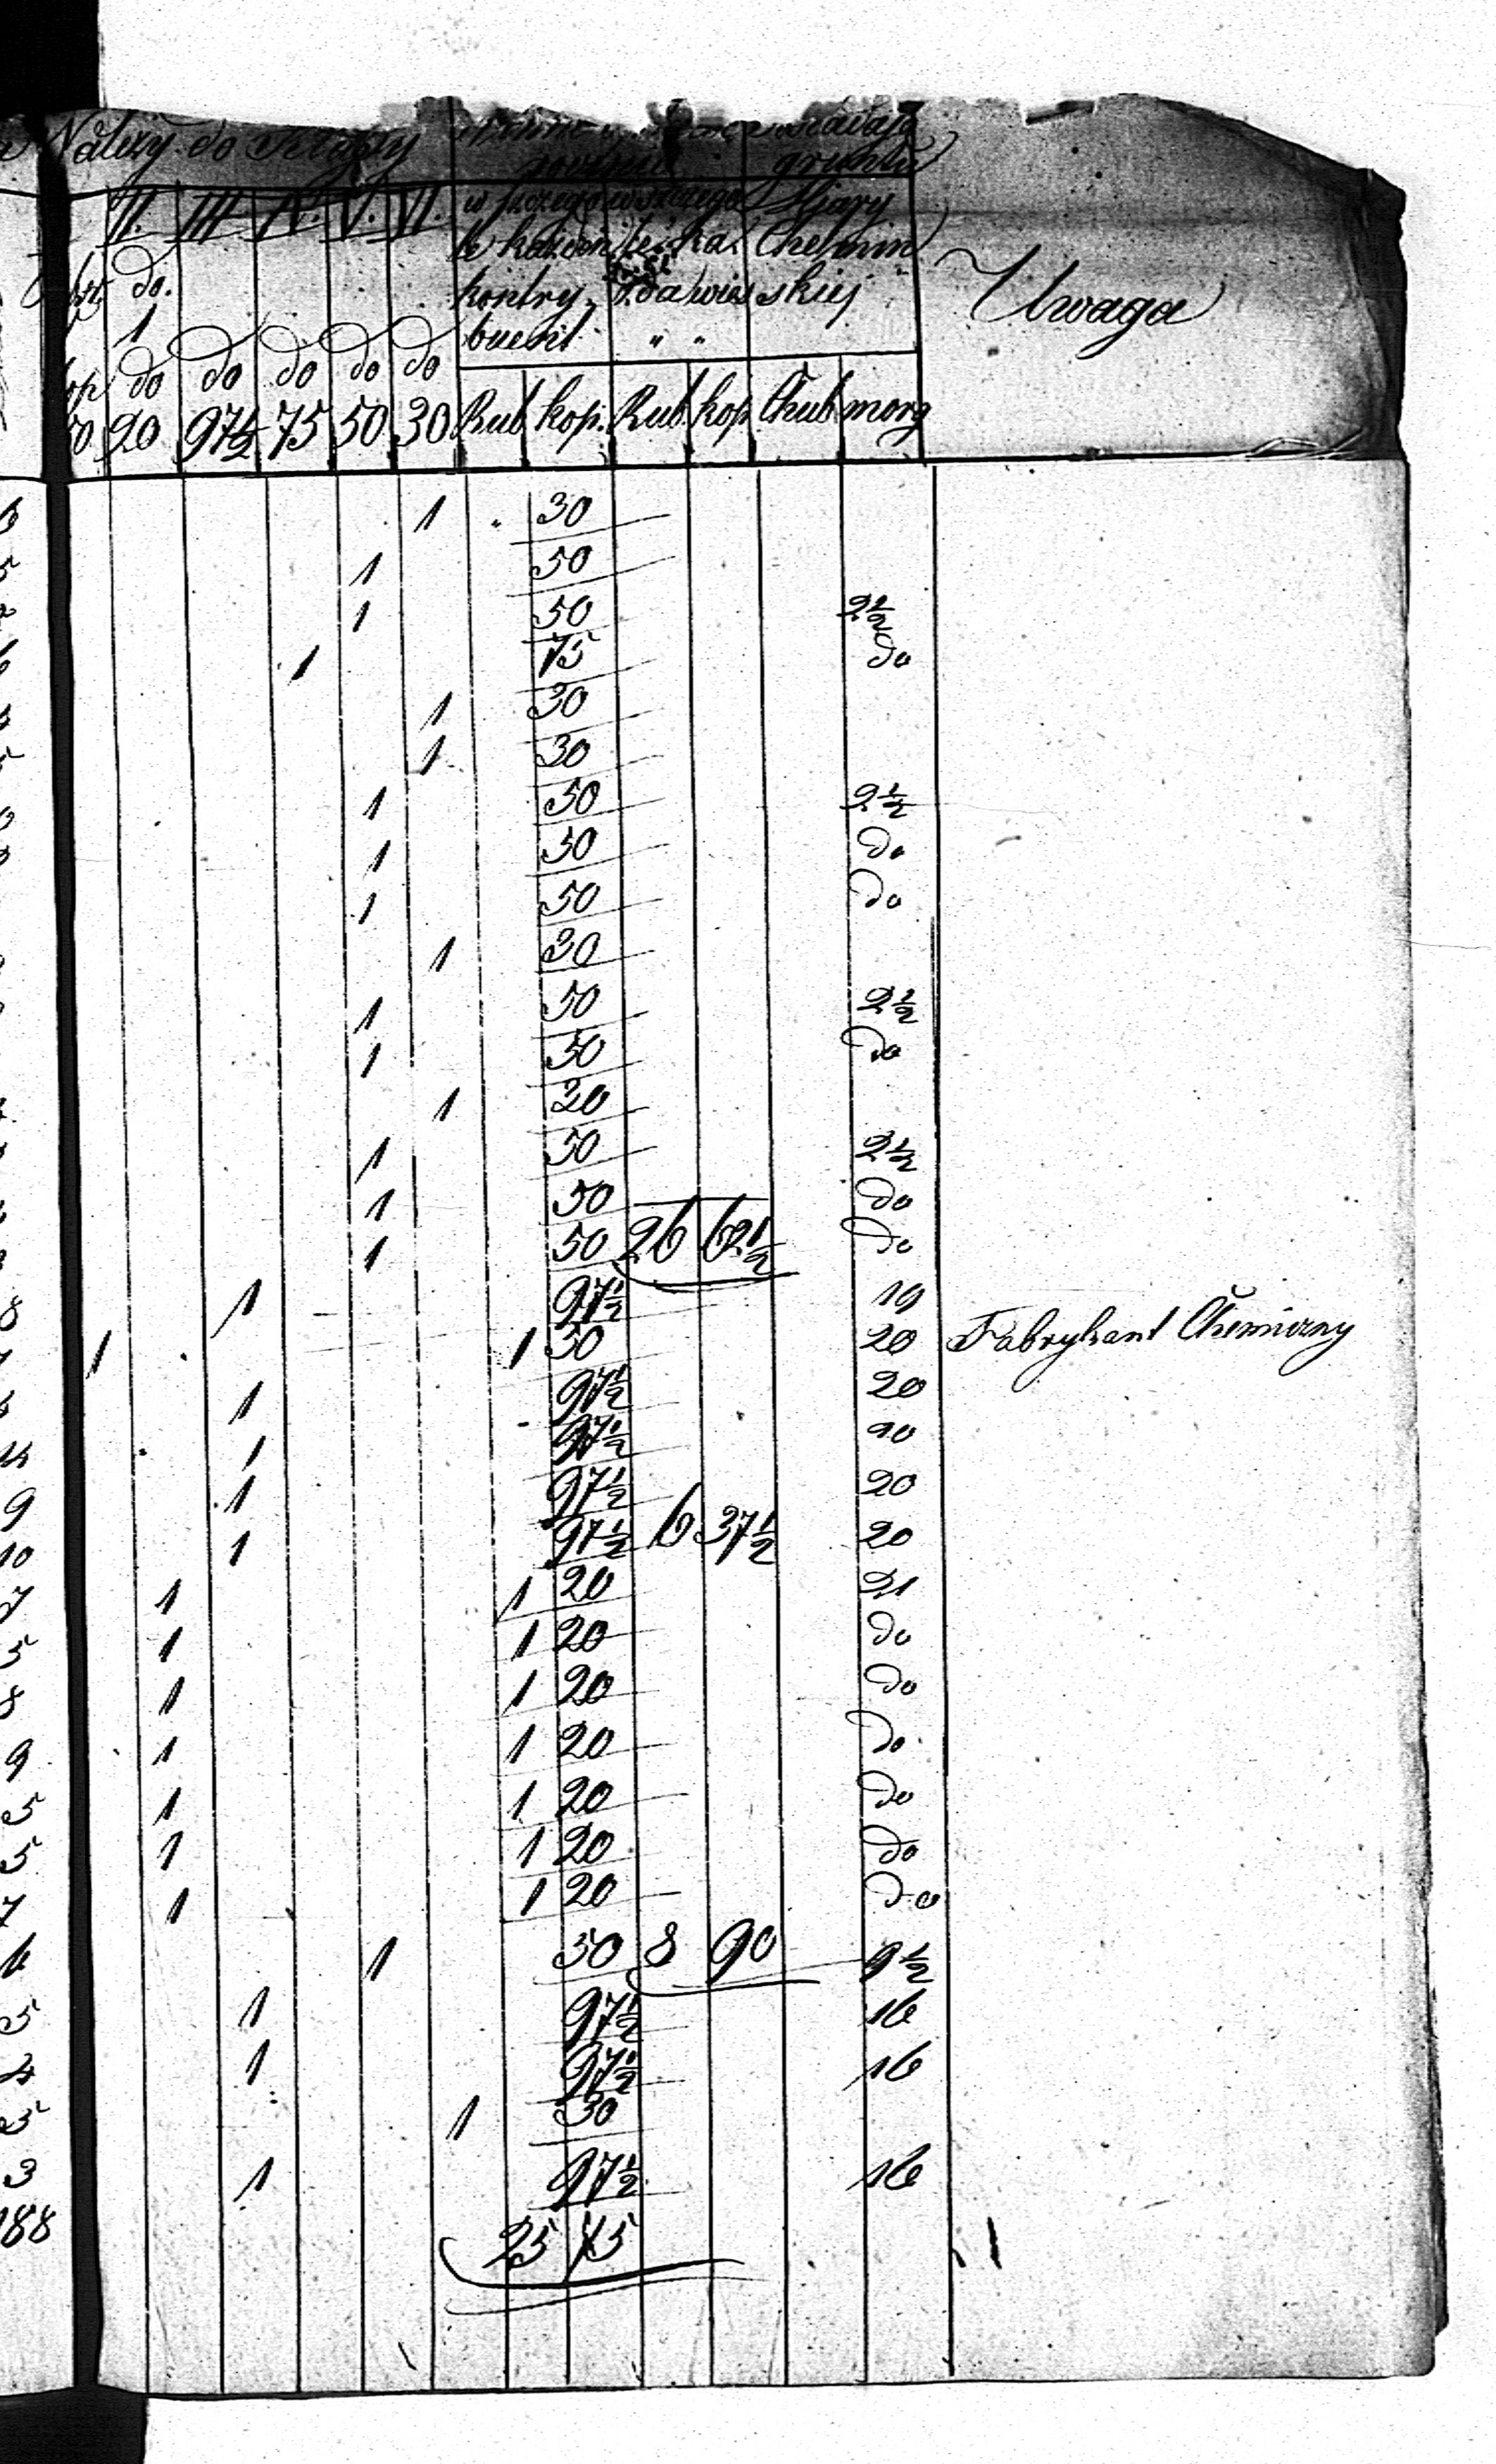 Należy do Klassy
gruntu
II. III IV. V. VI. w szczegó w szczegó Miary
le każden le ka. Chełmiń
do. kontry, da wieś skiej Uwaga
1 buent " "
do do do do do
20 97½ 75 50 30 Rub kop. Rub. kop Chub morg
6 1 . 30
5 1 50
2 1 50 2½
6 1 75 do
4 1 30
5 1 30
0 1 50 2½
3 1 50 do
1 50 do
1 30
1 50 2½
1 50 do
1 30
1 50 2½
1 50 do
1 50 26 62½ do
8 1 97½ 19
1 1 50 20 Fabrykant Chemiczny
1 97½ 20
14 1 97½ 20
9 1 97½ 20
10 1 97½ 6 37½ 20
7 1 1 20 21
5 1 1 20 do
8 1 1 20 do
9 1 1 20 do
5 1 1 20 do
5 1 1 20 do
7 1 1 20 do
6 1 50 8 90 9½
5 1 97½ 16
4 1 97½ 16
5 1 30
3 1 97½ 16
188 25 75